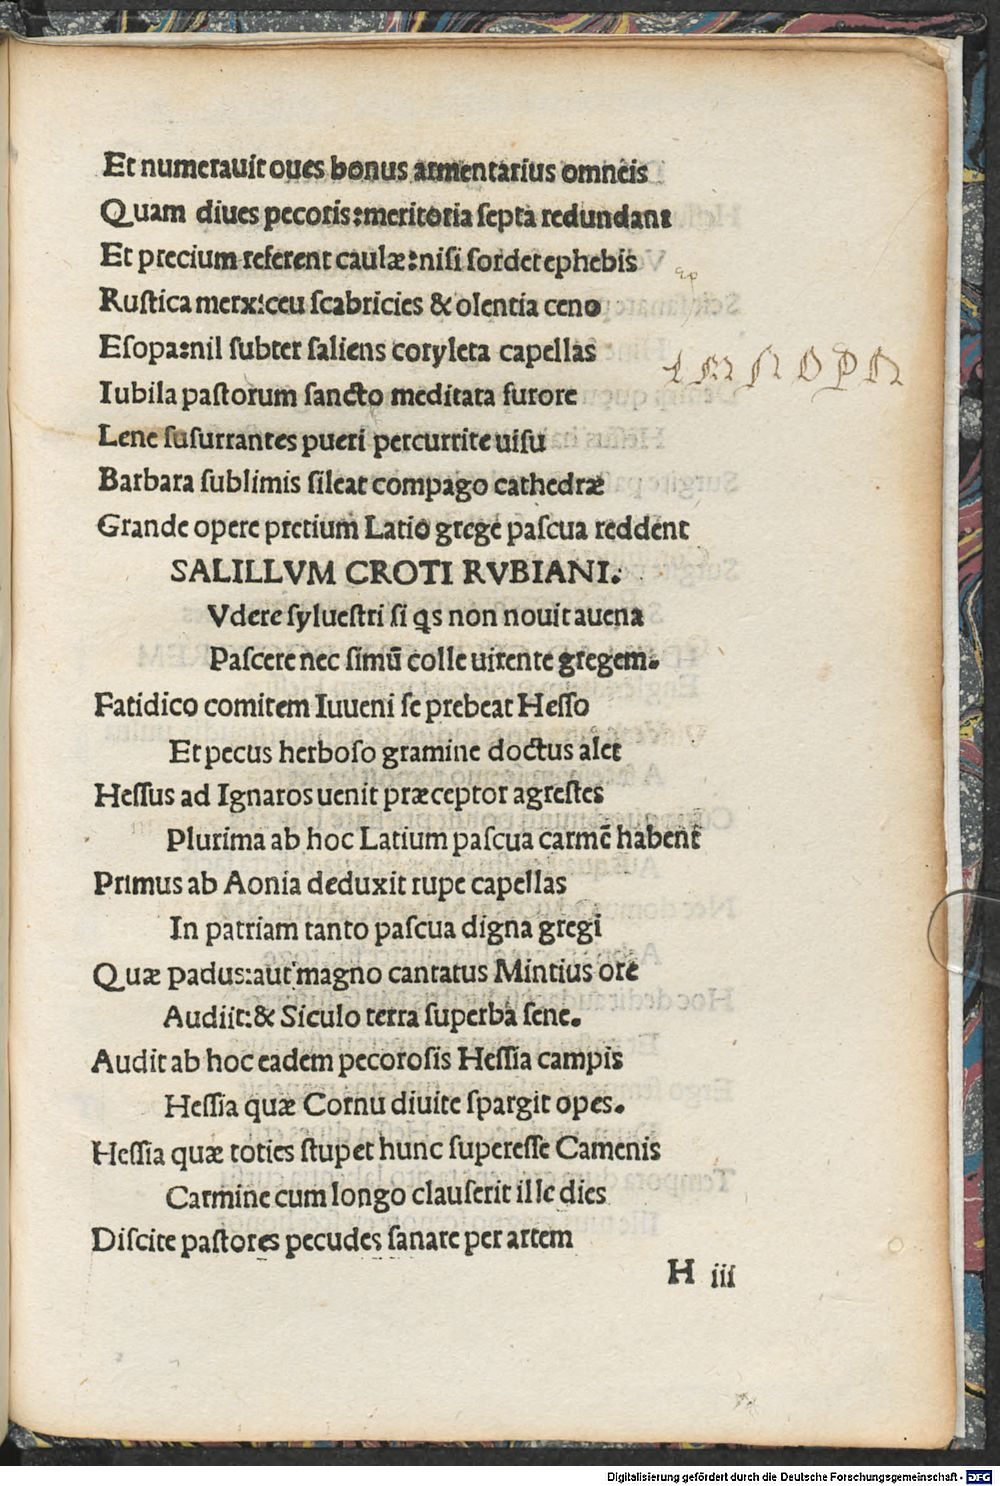 Et numerauit oues bonus armentarius omneis
Quam diues pecoris:meritoria ſepta redundant
Et precium referent caulæ:niſi ſordet ephebis
Ruſtica merx:ceu ſcabricies & olentia ceno
Eſopa:nil ſubter ſaliens coryleta capellas
Iubila paſtorum ſancto meditata furore
Lene ſuſurrantes pueri percurrite uiſu
Barbara ſublimis ſileat compago cathedræ
Grande opere pretium Latio grege paſcua reddent
SALILLVM CROTI RVBIANI.
Vdere ſylueſtri ſi qs non nouit auena
Paſcere nec ſimū colle uirente gregem.
Fatidico comitem Iuueni ſe prebeat Heſſo
Et pecus herboſo gramine doctus alet
Heſſus ad Ignaros uenit præceptor agreſtes
Plurima ab hoc Latium paſcua carmē habent
Primus ab Aonia deduxit rupe capellas
In patriam tanto paſcua digna gregi
Quæ padus:aut magno cantatus Mintius ore
Audiit:& Siculo terra ſuperba ſene.
Audit ab hoc eadem pecoroſis Heſſia campis
Heſſia quæ Cornu diuite ſpargit opes.
Heſſia quæ toties ſtupet hunc ſupereſſe Camenis
Carmine cum longo clauſerit ille dies
Diſcite paſtores pecudes ſanare per artem
H iii
Digitalisierung gefördert durch die Deutsche Forschungsgemeinschaft - DFG